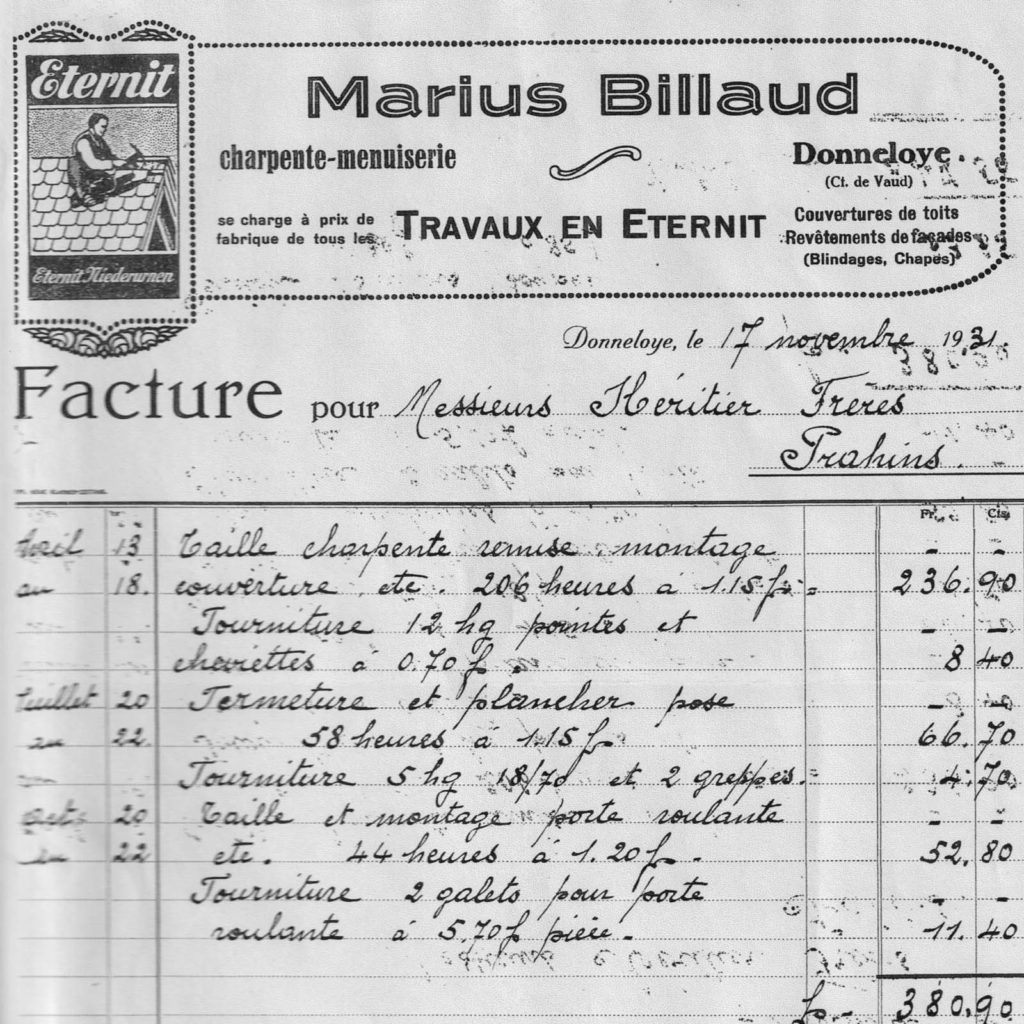 Eternit
Eternit Niederurnen
Marius Billaud
charpente-menuiserie
Donneloye
(Ct. de Vaud)
se charge à prix de
fabrique de tous les
TRAVAUX EN ETERNIT
Couvertures de toits
Revêtements de façades
(Blindages, Chapes)
Donneloye, le 17 novembre 1931.
FACTURE pour Messieurs Héritier Frères
Prahins.
Fr. Cts.
Avril 13 Taille charpente remise montage - -
au 18. couverture etc. 206 heures à 1.15 f. = 236.90
Fourniture 12 kg pointes et - -
chevillettes à 0.70 f. 8 40
Juillet 20 Fermeture et plancher pose - -
au 22. 58 heures à 1.15 f. 66.70
Fourniture 5 kg 18/70 et 2 greppes. 4.70
Août 20 Taille et montage porte roulante - -
au 22 etc. 44 heures à 1.20 f. - 52.80
Fourniture 2 galets pour porte - -
roulante à 5.70 f pièce. - 11.40
f - 380.90